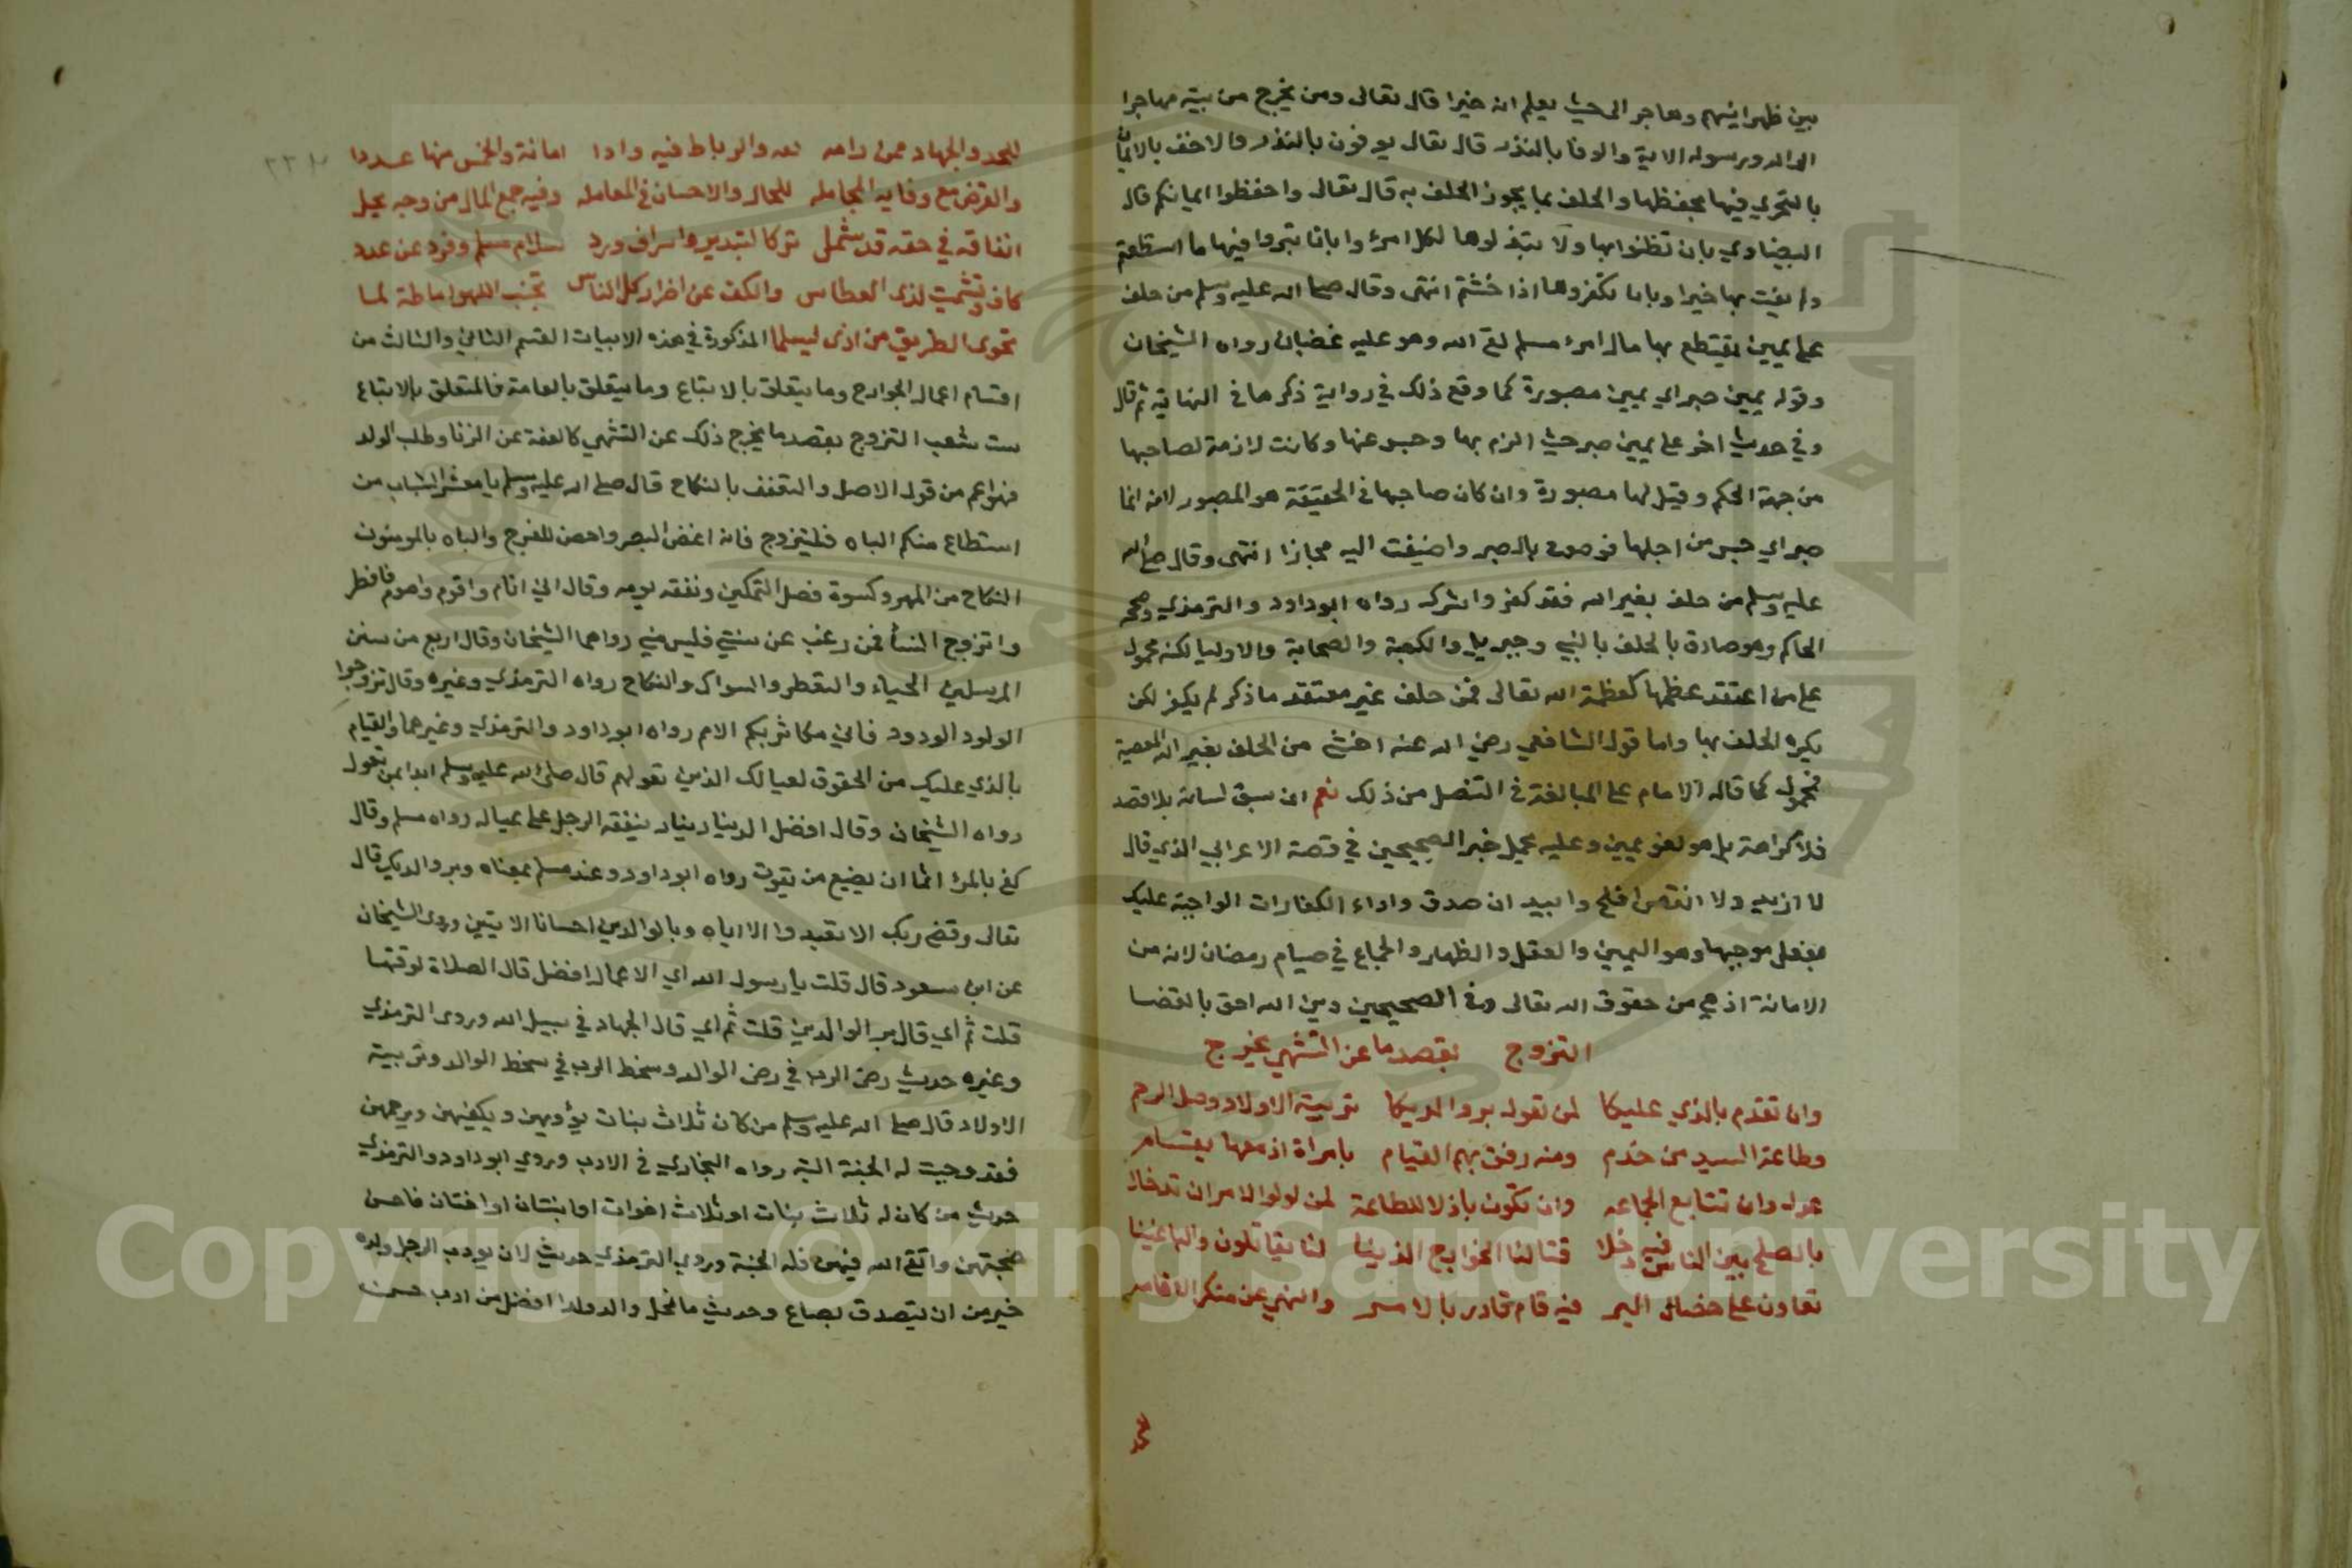 بين ظهرانيهم وهاجر الى حيث يعلم ان خيرا قال تعالى ومن يخرج من بيته مهاجرا
الى الله ورسوله الاية والوفا بالنذر قال تعالى يوفون بالنذر بالايمان
بالتحري فيها بحفظها والحلف بما يجوز الحلف به قال تعالى واحفظوا ايمانكم قال
البيضاوي بان تظنوا بها ولا تبتذلوها لكل امرئ او بانا تبروا فيها ما استطعتم
ولم يفت بها خيرا وبانا تكفروها اذا حنثتم انتهى وقال صلى الله عليه وسلم من حلف
على يمين يقتطع بها مال امرء مسلم لقي الله وهو عليه غضبان رواه الشيخان
وقوله يمين صبر اي يمين مصبورة كما وقع ذلك في رواية ذكرها في النهاية ثم قال
وفي حديث اخر على يمين صبر حيث الزم بها وحبس عنها وكانت لازمة لصاحبها
من جهة الحكم وقيل لها مصبورة وان كان صاحبها في الحقيقة هو المصبور لانه انما
صبر اي حبس من اجلها فوصفت بالصبر واضيفت اليه مجازا انتهى وقال صلى الله
عليه وسلم من حلف بغير الله فقد كفر واشرك رواه ابو داود والترمذي وصححه
الحاكم وهو صادق بالحلف بالنبي وجبريل والكعبة والصحابة والاوليا لكنه محمول
على من اعتقد عظمها كعظمة الله تعالى فمن حلف غير معتقد ما ذكر لم يكفر لكن
يكره الحلف بها واما قول الشافعي رضي الله عنه اخشى من الحلف بغير الله المعصية
فمحمول كما قاله الامام على المبالغة في التنصل من ذلك نعم ان سبق لسانه بلا قصد
فلا كراهة بل هو لغو يمين وعليه يحمل خبر الصحيحين في قصة الاعرابي الذي قال
لا ازيد ولا انقص افلح وابيه ان صدق واداء الكفارات الواجبة عليك
بفعل موجبها وهو اليمين والعقل والظهار والجماع في صيام رمضان لانه من
الامانة اذ هي من حقوق الله تعالى وفي الصحيحين دين الله احق بالقضا
التزوج بقصد ما عن التشهي يخرج
وان تقدم بالذي عليكا لمن تعوله بر والديكا تربية الاولاد وصل الرحم
وطاعة السيد من خدم ومنه رفق بهم القيام بامراة اذ معها يقسام
عدل وان تتابع الجماعه وان تكون باذلا للطاعة لمن لولوا الامر ان تدخلا
بالصلح بين الناس فيه دخلا قتالنا الخوارج الذينا لنا يقاتلون والباغينا
تعاون على خصال البر فيه قام قادر بالامر والنهي عن منكر الاقامه
للحد والجهاد ممن رامه والرباط فيه وادا امانة والخمس منها عددا
والقرض مع وفايه المجامله للجار والاحسان في المعامله وفيه جمع المال من وجه يحل
انفاقه في حقه قد شمل تركا لتبذير واسراف ورد سلام مسلم وفرد عن عدد
كاف وتشميت لذى العطاس والكف عن اضرار كل الناس تجنب اللهو اماطة لما
تحوى الطريق من اذى ليسلما المذكورة في هذه الابيات القسم الثاني والثالث من
اقسام اعمال الجوارح وما يتعلق بالاتباع وما يتعلق بالعامة فالمتعلق بالاتباع
ست شعب التزوج بقصد ما يخرج ذلك عن التشهي كالعفة عن الزنا وطلب الولد
فهو اعم من قوله الاصل والتعفف بالنكاح قال صلى الله عليه وسلم يا معشر الشباب من
استطاع منكم الباه فليتزوج فانه اغض للبصر واحصن للفرج والباه بالمد مؤن
النكاح من المهر وكسوة فصل التمكين ونفقه يومه وقال اني انام واقوم واصوم فافطر
واتزوج النسا فمن رغب عن سنتي فليس مني رواهما الشيخان وقال اربع من سنن
المرسلين الحياء والتعطر والسواك والنكاح رواه الترمذي وغيره وقال تزوجوا
الولود الودود فاني مكاثر بكم الامم رواه ابو داود والترمذي وغيرهما والقيام
بالذي عليك من الحقوق لعيالك الذين تعولهم قال صلى الله عليه وسلم ابدا بمن تعول
رواه الشيخان وقال افضل الدينار دينار ينفقه الرجل على عياله رواه مسلم وقال
كفى بالمرء اثما ان يضيع من يقوت رواه ابو داود وعند مسلم بمعناه وبر والديك قال
تعالى وقضى ربك الا تعبدوا الا اياه وبالوالدين احسانا الايتين وروى الشيخان
عن ابن مسعود قال قلت يا رسول الله اي الاعمال افضل قال الصلاة لوقتها
قلت ثم اي قال بر الوالدين قلت ثم اي قال الجهاد في سبيل الله وروى الترمذي
وغيره حديث رضى الرب في رضى الوالد وسخط الرب في سخط الوالد وتربية
الاولاد قال صلى الله عليه وسلم من كان ثلاث بنات يؤويهن ويكفيهن ويرحمهن
فقد وجبت له الجنة البتة رواه البخاري في الادب وروى ابو داود والترمذي
حديث من كان له ثلاث بنات او ثلاث اخوات او ابنتان او اختان فاحسن
صحبتهن واتقى الله فيهن فله الجنة وروى الترمذي حديث لان يودب الرجل ولده
خير من ان يتصدق بصاع وحديث ما نحل والد ولدا افضل من ادب حسن
Copyright © King Saud University